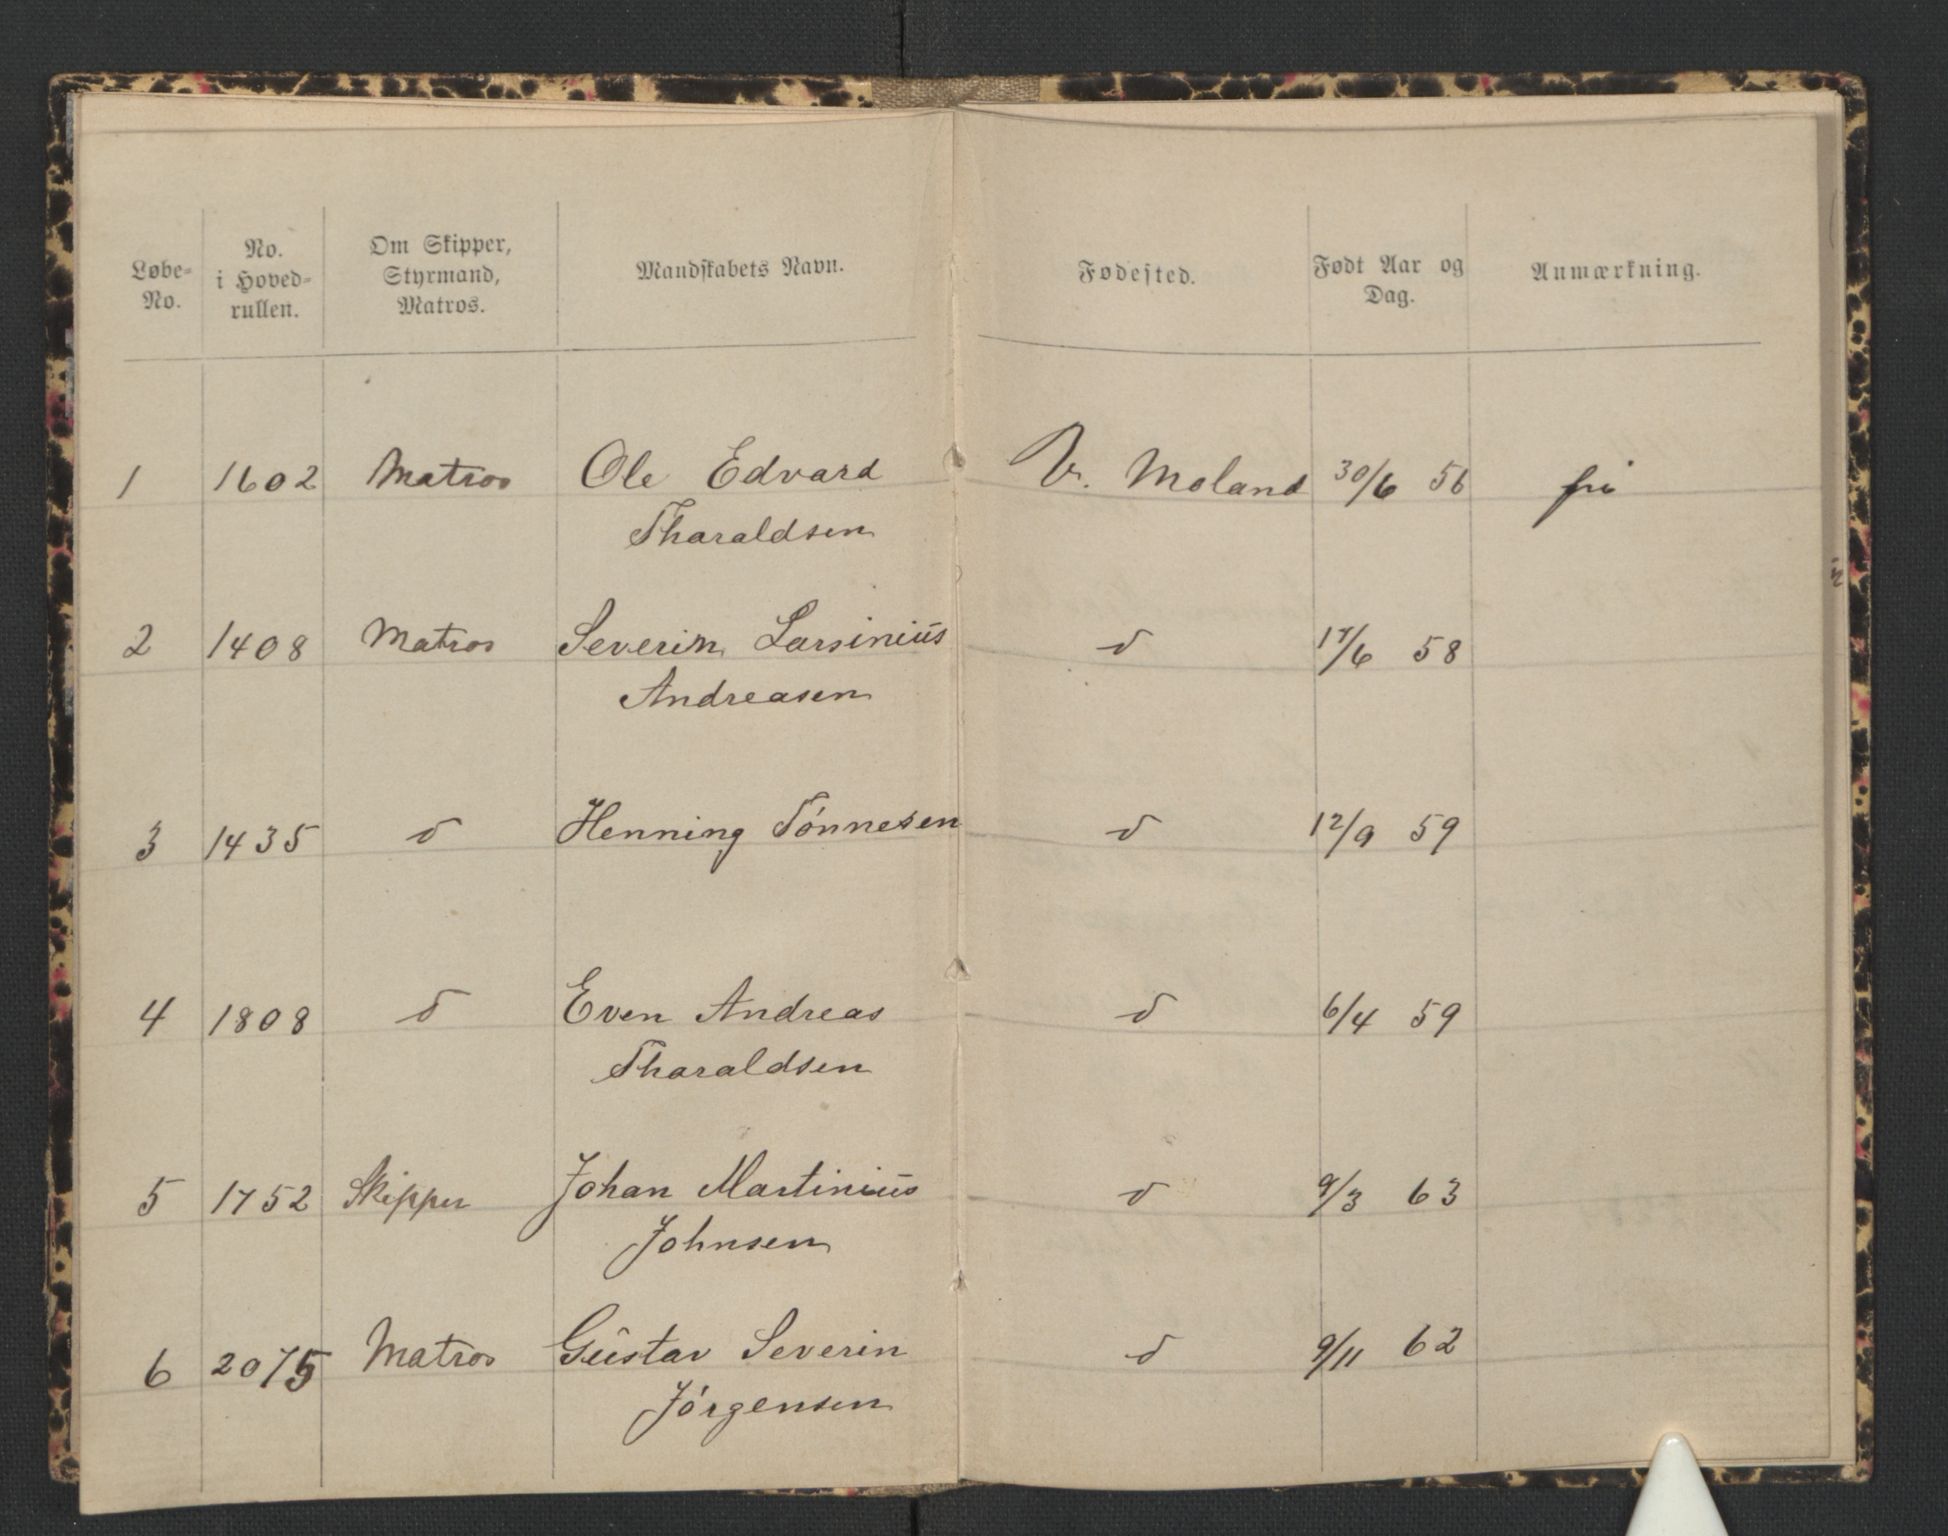 Løbe-No. | No. i Hoved-rullen. | Om Skipper, Styrmand, Matros. | Mandskabets Navn. | Fødested. | Født Aar og Dag. | Anmærkning.
1 1602 Matros Ole Edvard V. Moland 30/6 56 fri
Tharaldsen
2 1408 Matros Severin Larsinius d 17/6 58
Andreasen
3 1435 d Henning Tønnesen d 12/9 59
4 1808 d Even Andreas d 6/4 59
Tharaldsen
5 1752 Skipper Johan Martinius d 9/3 63
Johnsen
6 2075 Matros Gustav Severin d 9/11 62
Jørgensen